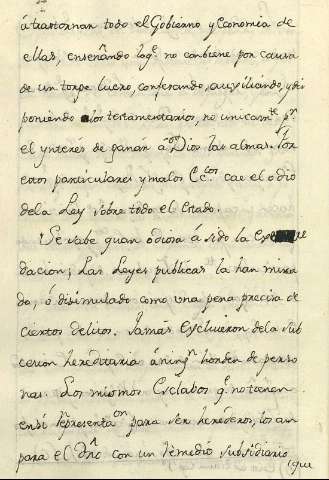 á trastornan todo el Gobierno y Economia de
ellas, enseñando loq.e no conbiene por causa
de un torpe lucro, confesando, auxiliando, y dis
poniendo á los testamentarios, no unicam.te p.r
el ynterés de ganár á Dios las almas. Por
estos particulares y malos Ec.cos cae el odio
dela Ley sobre todo el Estado.
Se sabe quan odiosa á sido la
dacion; Las Leyes publicas la han mira
do, ó disimulado como una pena precisa de
ciertos delitos. Jamás excluieron dela sub
cesion hereditaria á ning.n horden de perso
nas. Los mismos Esclabos q.e no tienen
ensi representa.on para ser herederos, los am
para el dr̃o con un remedio subsidiario
que